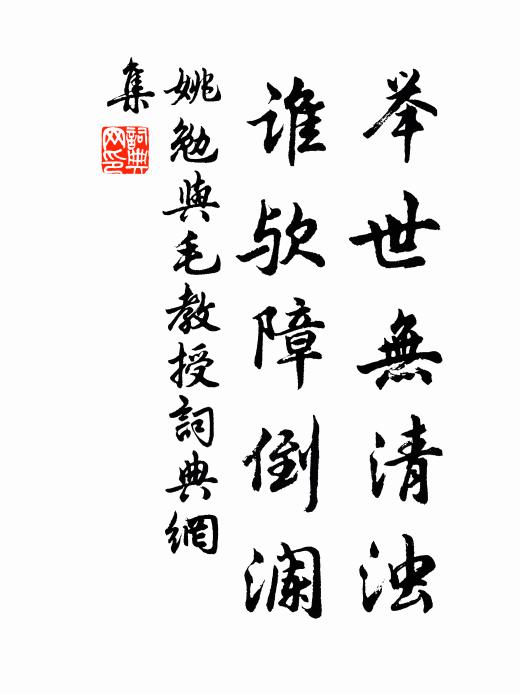 举世無清浊
谁欤障倒澜
姚勉與毛教授詞典網
集
詞典網印